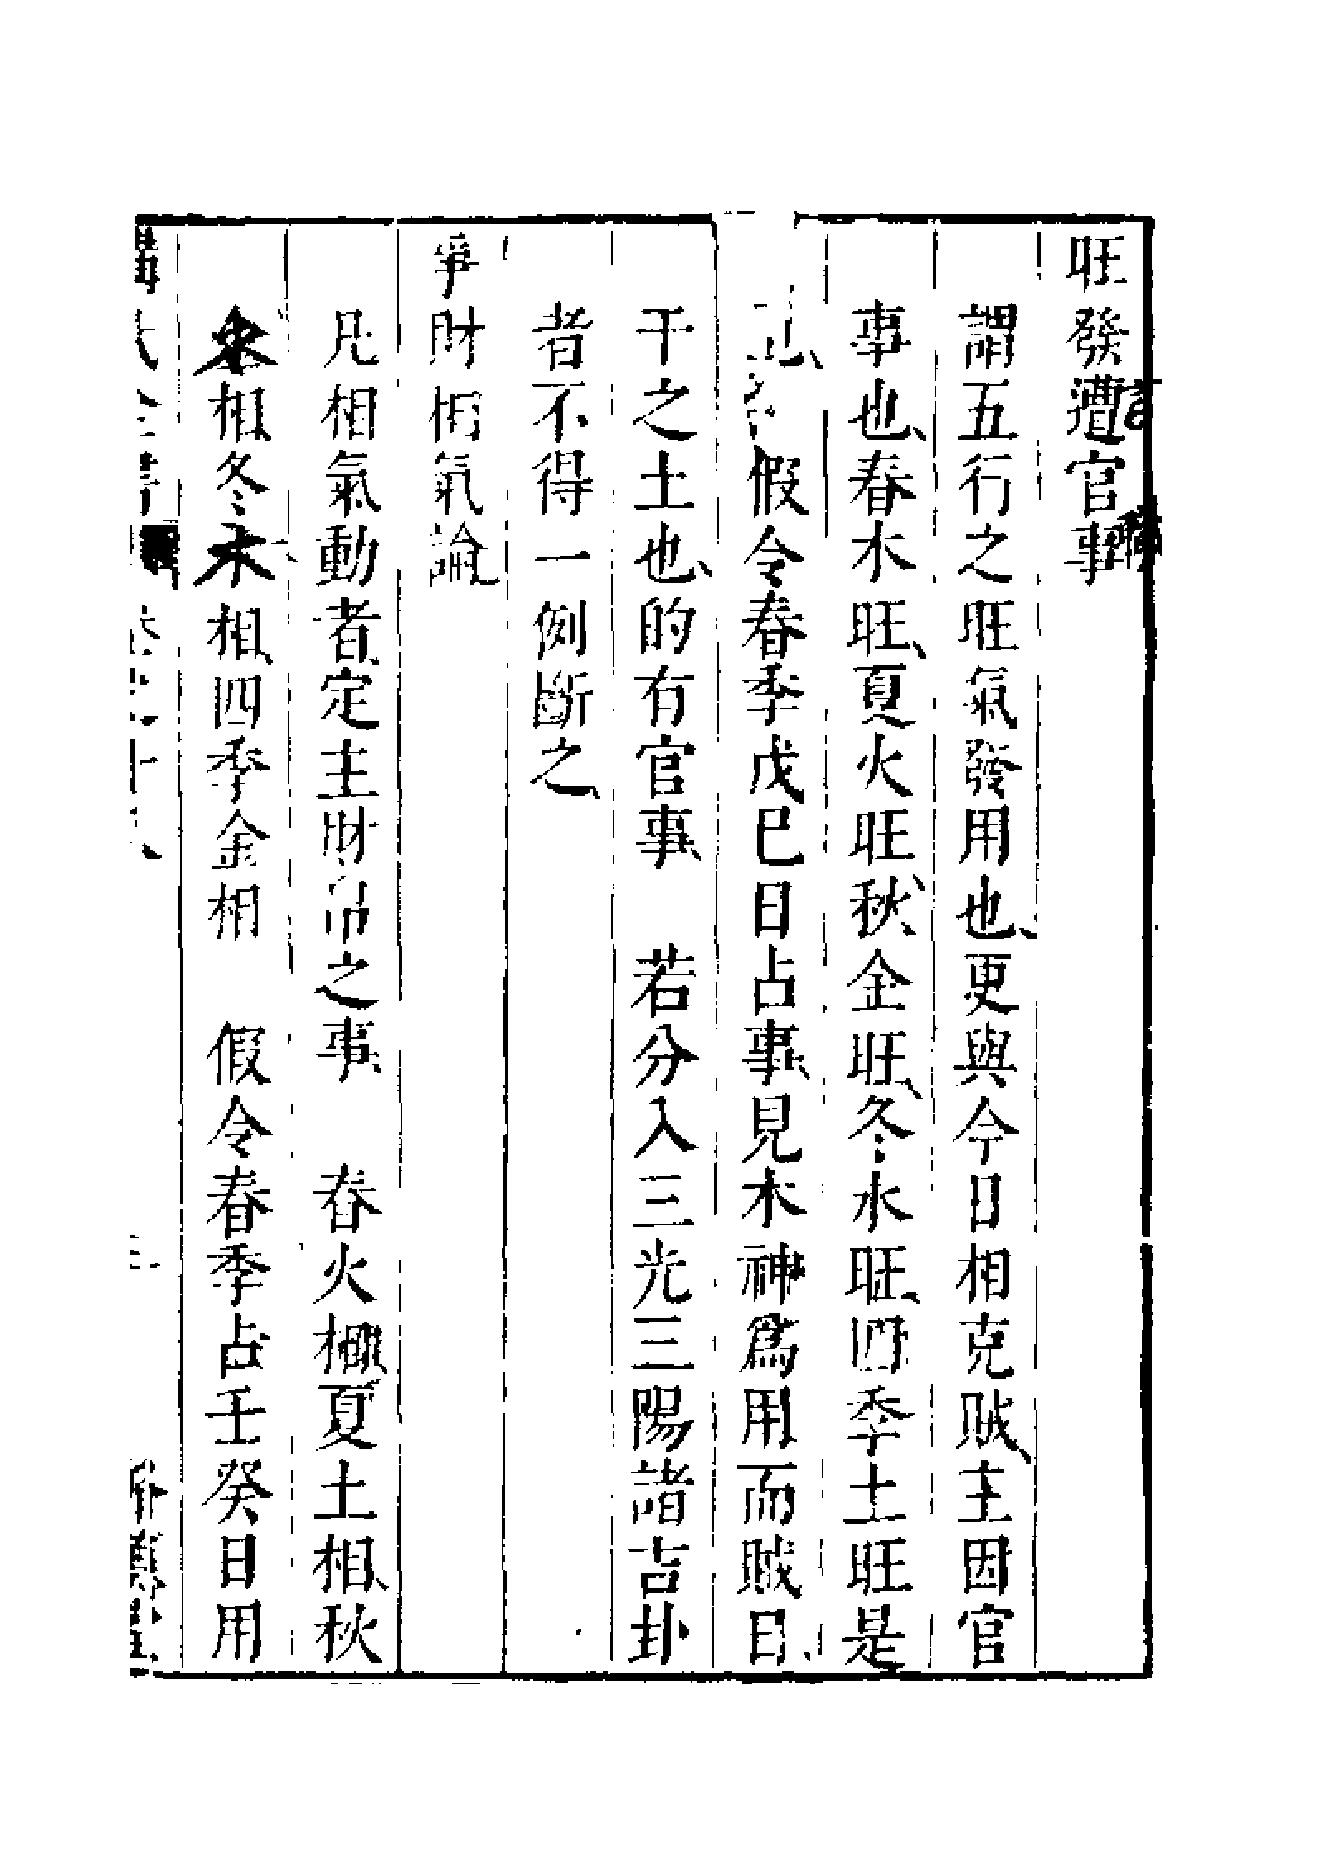 旺發遭官事
謂五行之旺氣發用也更與今日相克賊主因官
事也春木旺夏火旺秋金旺冬水旺四季土旺是
也 假令春季戊巳日占事見木神爲用而賊日
干之土也的有官事 若分入三光三陽諸吉卦
者不得一例斷之
爭財相氣論
凡相氣動者定主財帛之事 春火相夏土相秋
水相冬木相四季金相 假令春季占壬癸日用